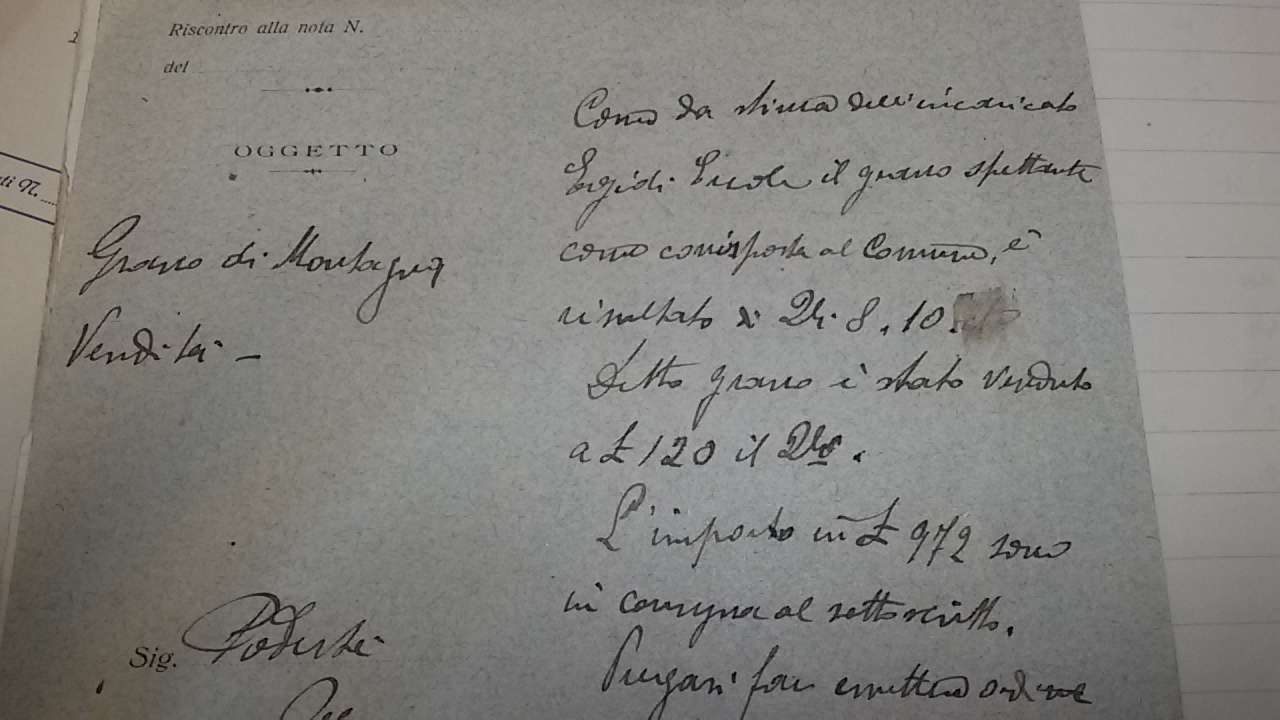 Riscontro alla nota N.
del
OGGETTO
Grano di Montagna
Vendita -
Sig. Podestà
Come da stima dell'incaricato
Egidi Ercole il grano spettante
come corrisposta al Comune, è
risultato di Qli 8,10
Detto grano è stato venduto
a £ 120 il Qle.
L'importo in £ 972 sono
in consegna al sottoscritto.
Pregasi far emettere ordine